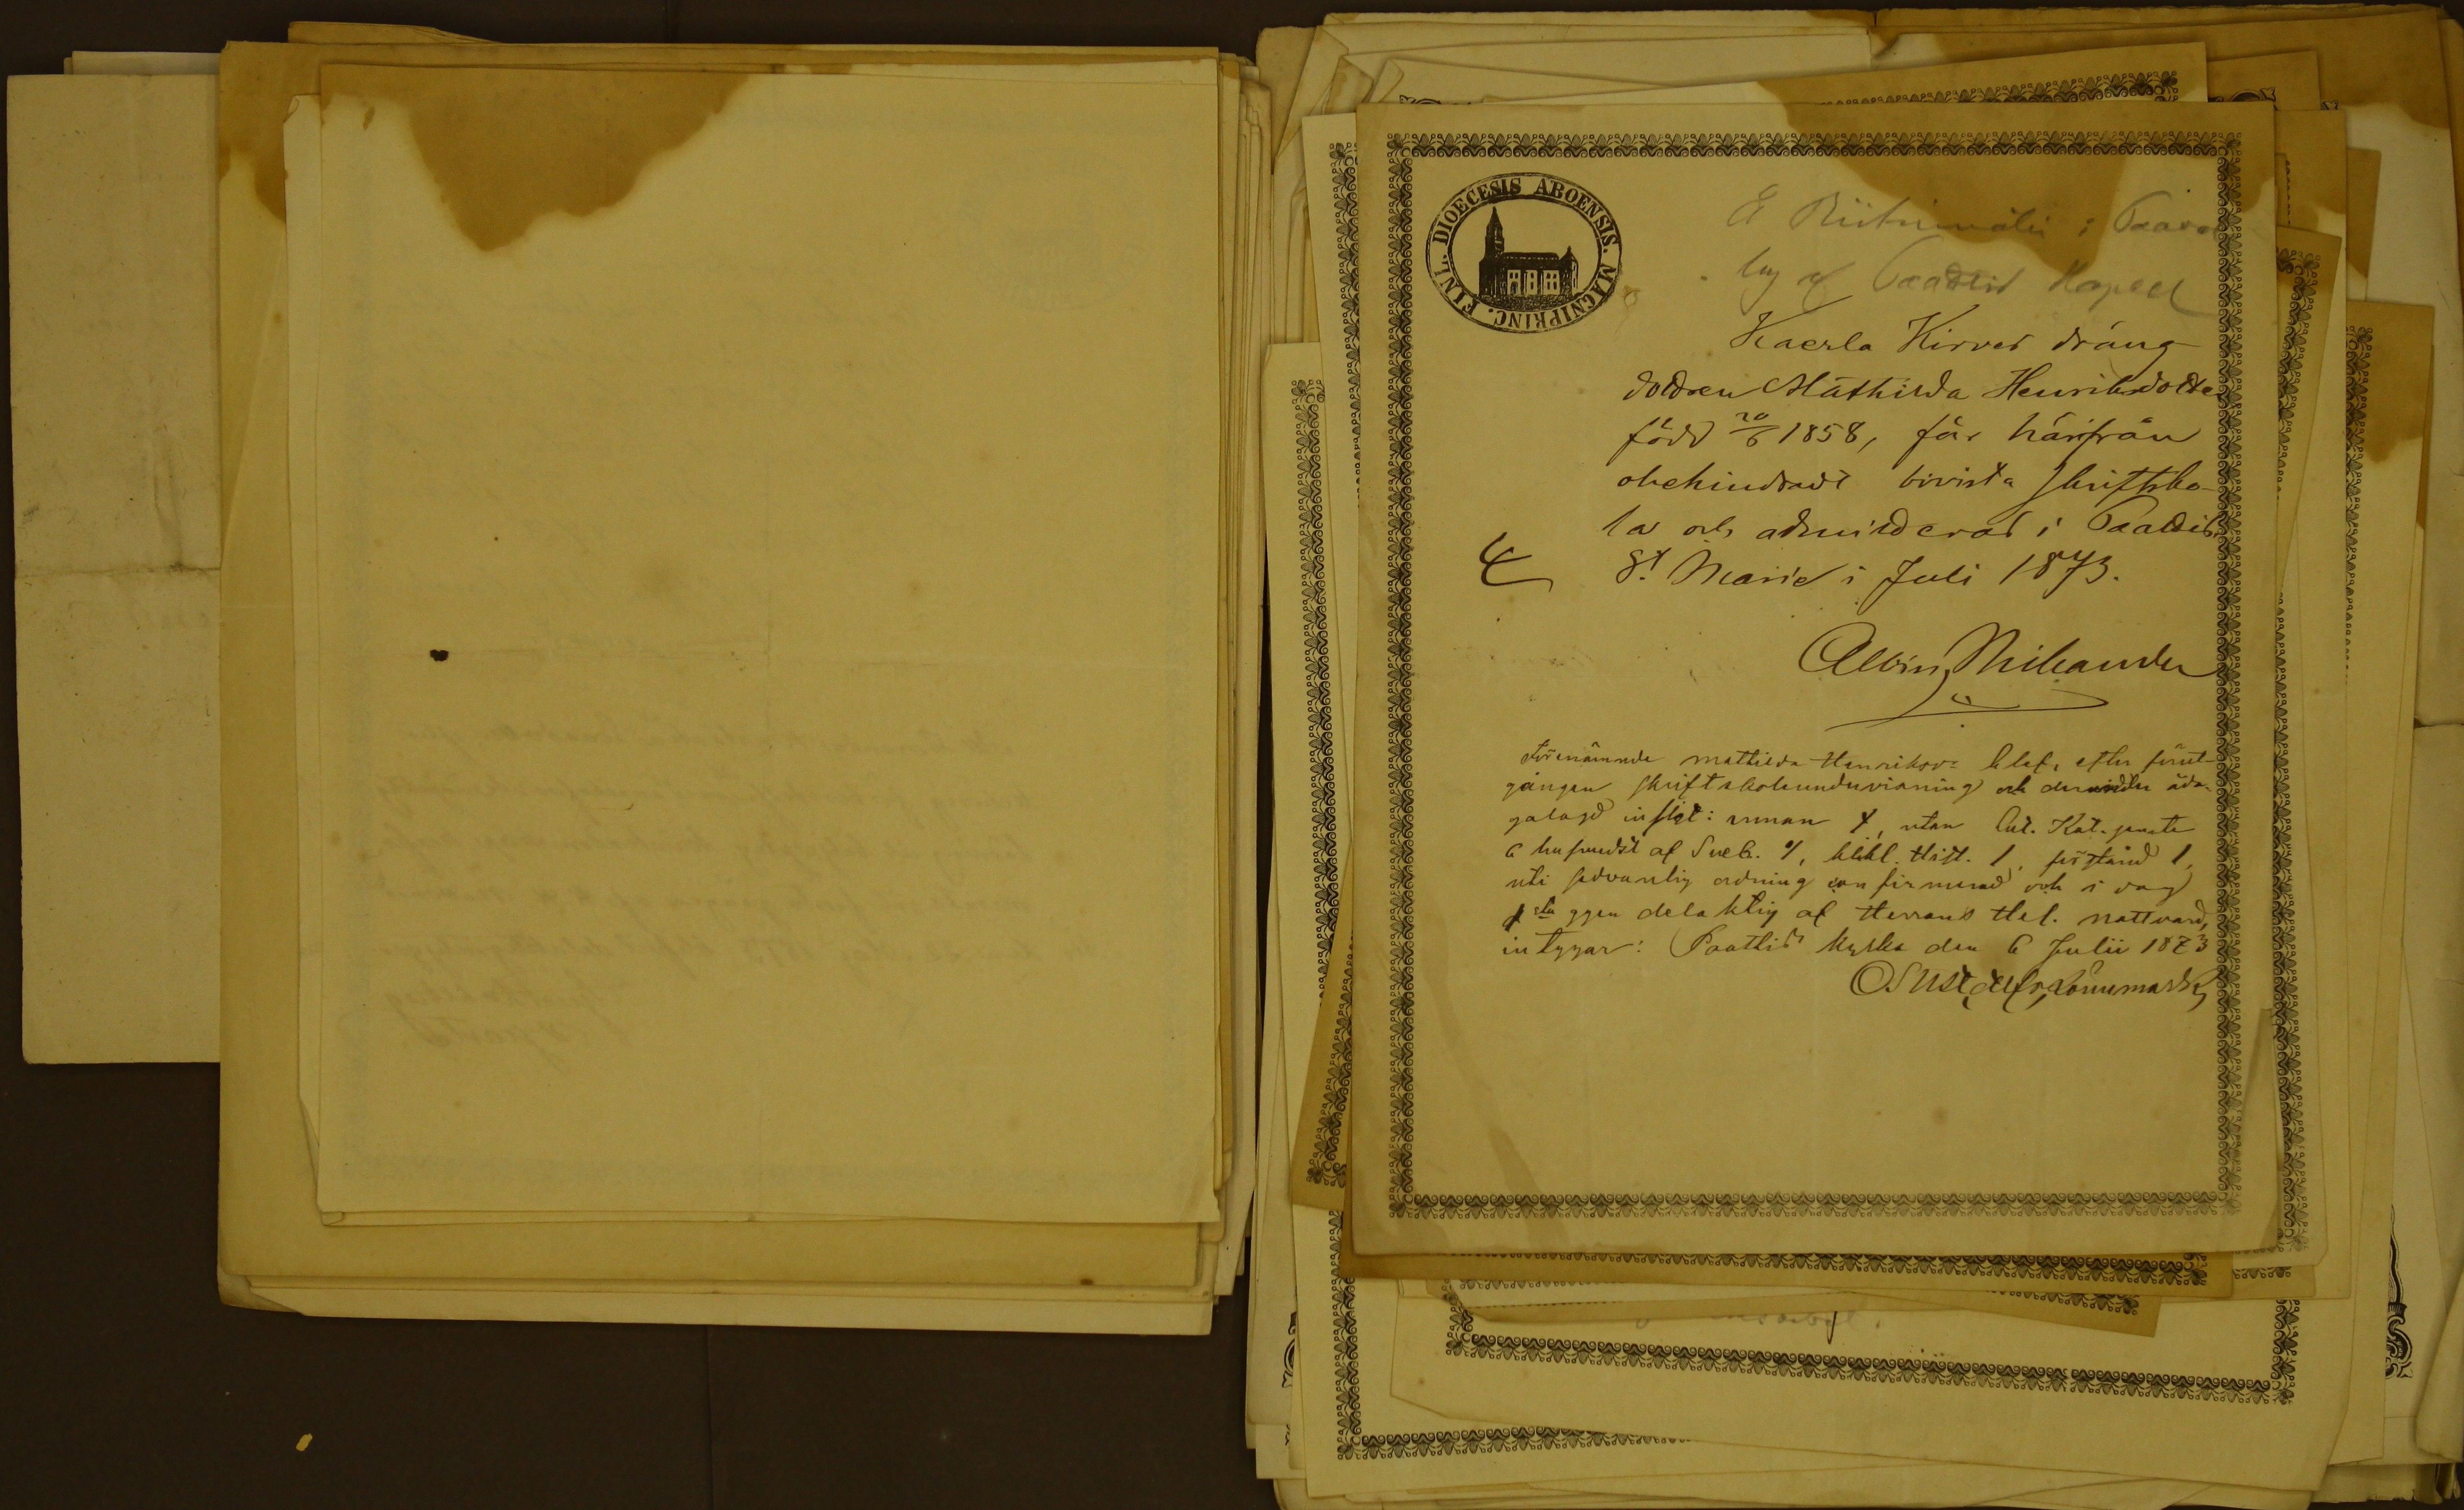 DIOECESIS ABOENSIS. MAGNIPRINC. FINL.
i
by af Kapell
Kaerla Kirves dräng
dottren Mathilda Henriksdotter
född 20/6 1858, får härifrån
obehindradt bivista skriftsko-
la och admitteras i Paattis.
4 St Marie i Juli 1873.
Albin Mikander
Förenämnde Mathilda Henriksd: blef, efter föret-
gången skriftskoleundervisning och derunder åda-
galagd insigt: innan 4, utan Lut. Kat. jemte
6 hufvudst af Sveb. %, bibl. Hist. 1, förstånd 1,
uti sedvanlig ordning confirmerad och i dag
1sta ggen delaktig af Herrans Hel. nattvard,
intygar: Paattis kyrka den 6 Julii 1873